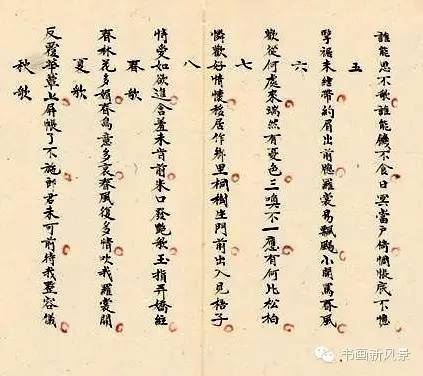 誰能思不歌誰能饑不食日冥當户倚惆悵底不憶
五
擥裙未結帶約眉出前牕羅裳易飄颺小開罵春風
六
歡從何處來端然有憂色三喚不一應有何比松柏
七
憐歡好情懷移居作鄉里桐樹生門前出入見梧子
八
情愛如欲進含羞未肯前朱口發艷歌玉指弄嬌絃
春歌
春林花多媚春鳥意多哀春風復多情吹我羅裳開
夏歌
反覆華簟上屏帳了不施郎君未可前待我整容儀
秋歌
书画新风景